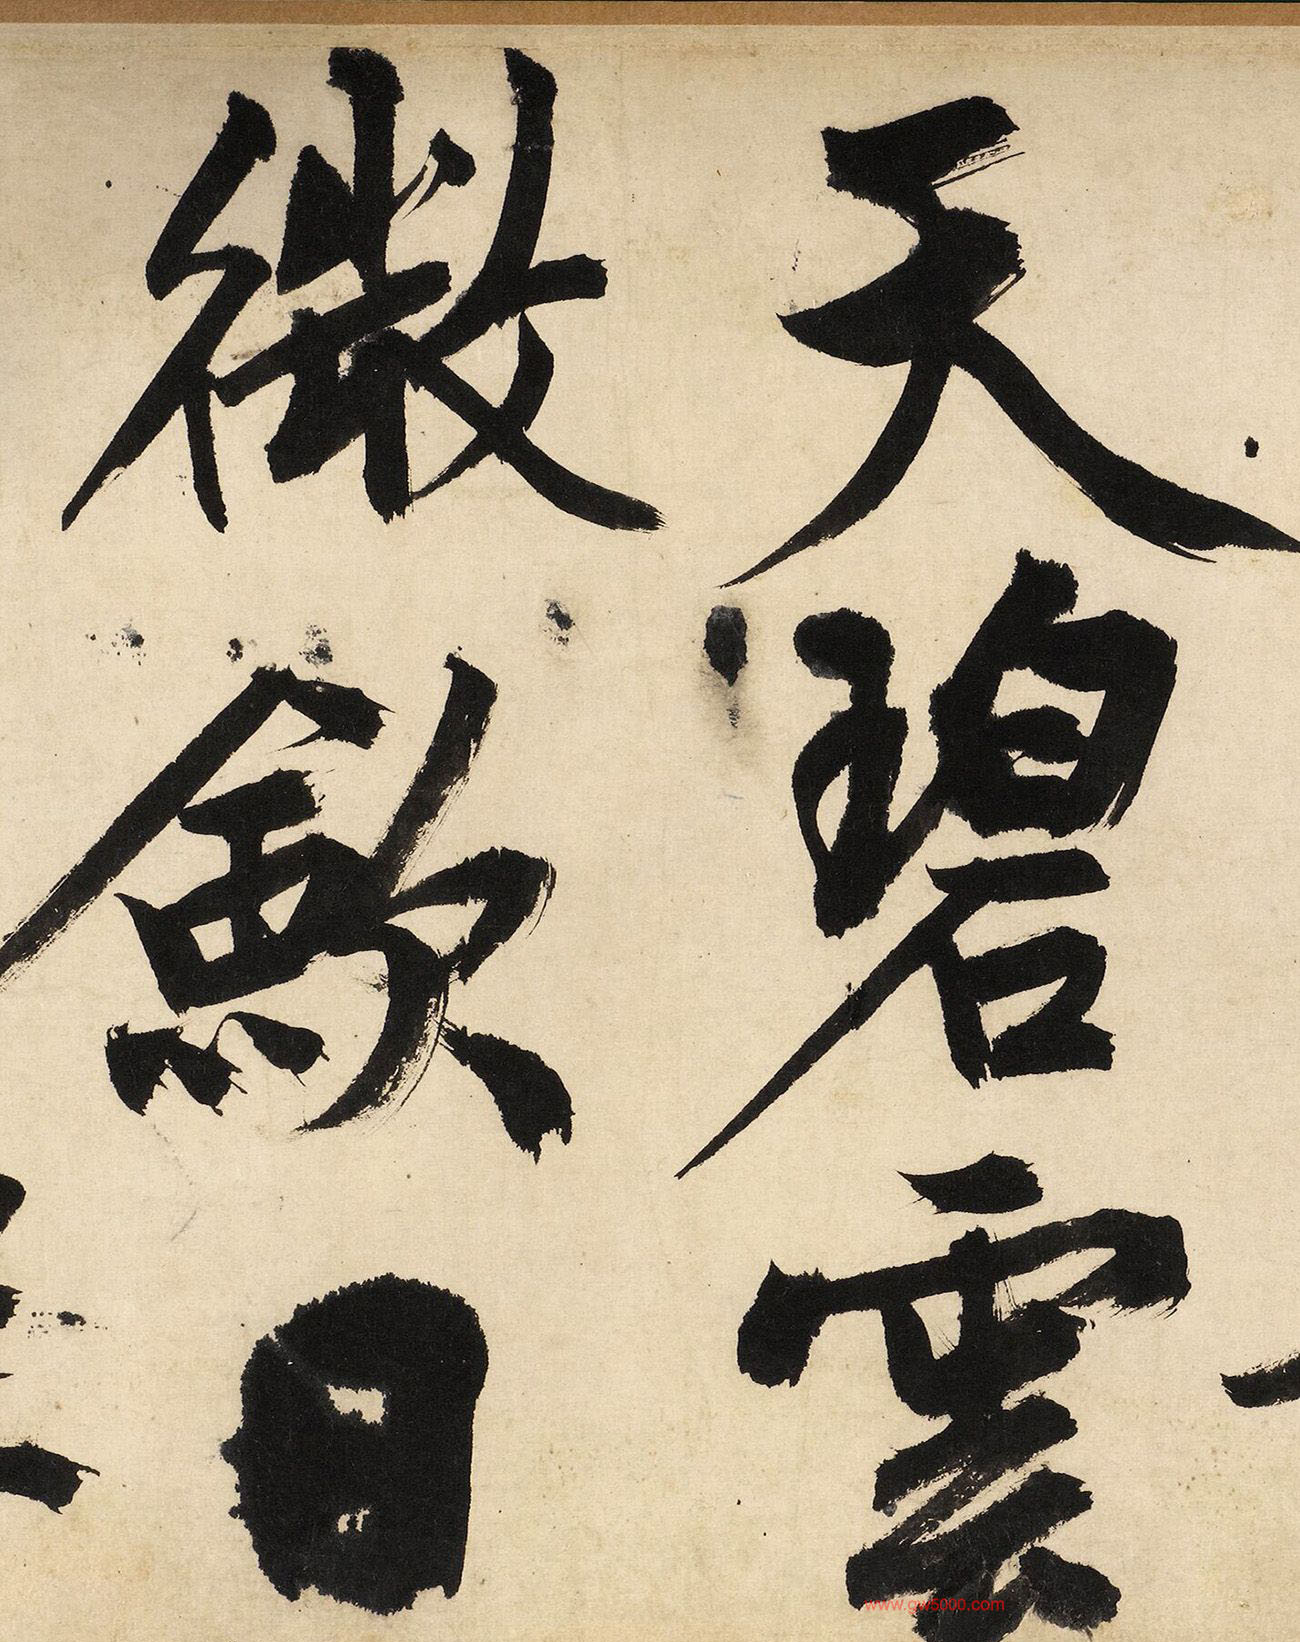 天碧雲
微歛日
www.gw5000.com